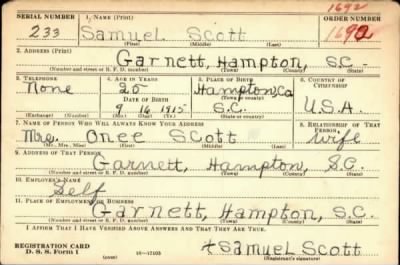 1692
SERIAL NUMBER 1. NAME (Print) ORDER NUMBER
233 Samuel Scott 1692
(First) (Middle) (Last)
2. ADDRESS (Print)
Garnett, Hampton, S.C.
(Number and street or R. F. D. number) (Town) (County) (State)
3. TELEPHONE 4. AGE IN YEARS 5. PLACE OF BIRTH 6. COUNTRY OF CITIZENSHIP
None 25 Hampton, Co
DATE OF BIRTH (Town or county)
9 16 1915 S.C. U.S.A.
(Exchange) (Number) (Mo.) (Day) (Yr.) (State or country)
7. NAME OF PERSON WHO WILL ALWAYS KNOW YOUR ADDRESS 8. RELATIONSHIP OF THAT PERSON
Mrs. Onee Scott wife
(Mr., Mrs., Miss) (First) (Middle) (Last)
9. ADDRESS OF THAT PERSON
Garnett, Hampton, S.C.
(Number and street or R. F. D. number) (Town) (County) (State)
10. EMPLOYER'S NAME
Self
11. PLACE OF EMPLOYMENT OR BUSINESS
Garnett, Hampton, S.C.
(Number and street or R. F. D. number) (Town) (County) (State)
I AFFIRM THAT I HAVE VERIFIED ABOVE ANSWERS AND THAT THEY ARE TRUE.
REGISTRATION CARD
D. S. S. Form 1 (over) 16—17105 Samuel Scott
(Registrant's signature)